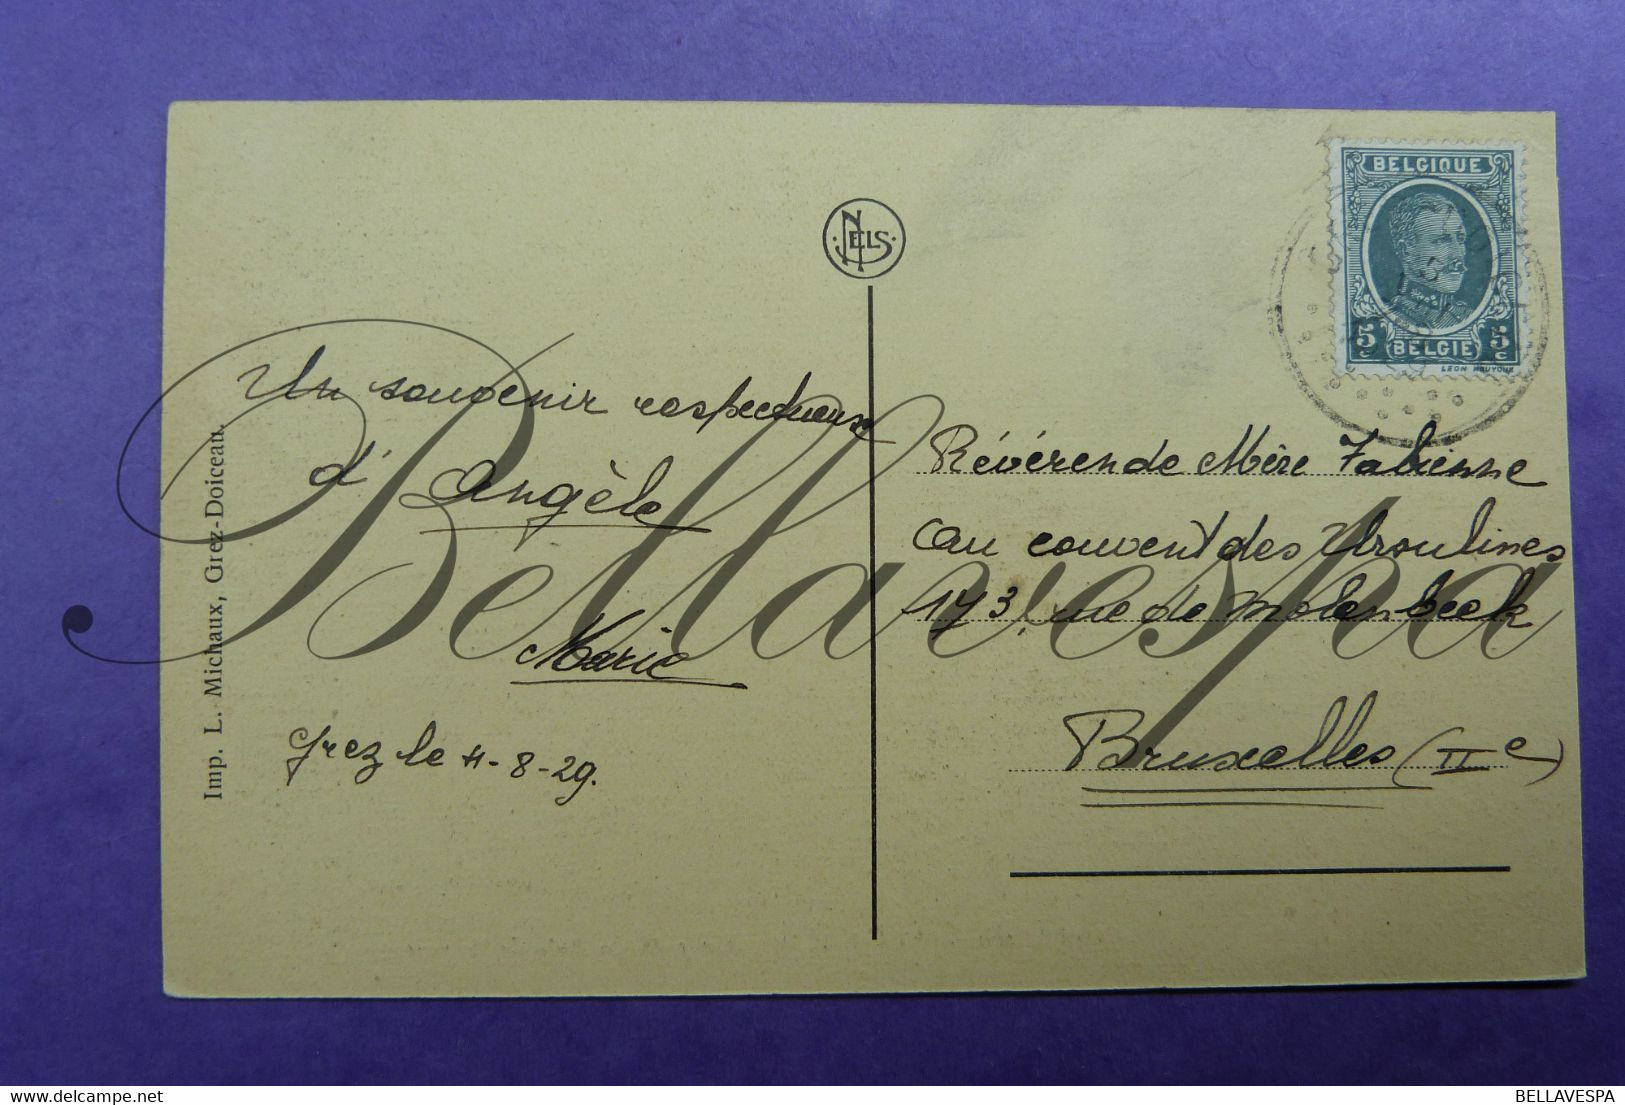 BELGIQUE
5c BELGIE 5c
NELS
Un souvenir respectueux
d'Angèle
Marie
Grez le 4-8-29.
Révérende Mère Fabienne
Au couvent des Ursulines
173, rue de Molenbeek
Bruxelles (IIe)
Imp. L. Michaux, Grez-Doiceau.
Bellavespa
BELLAVESPA